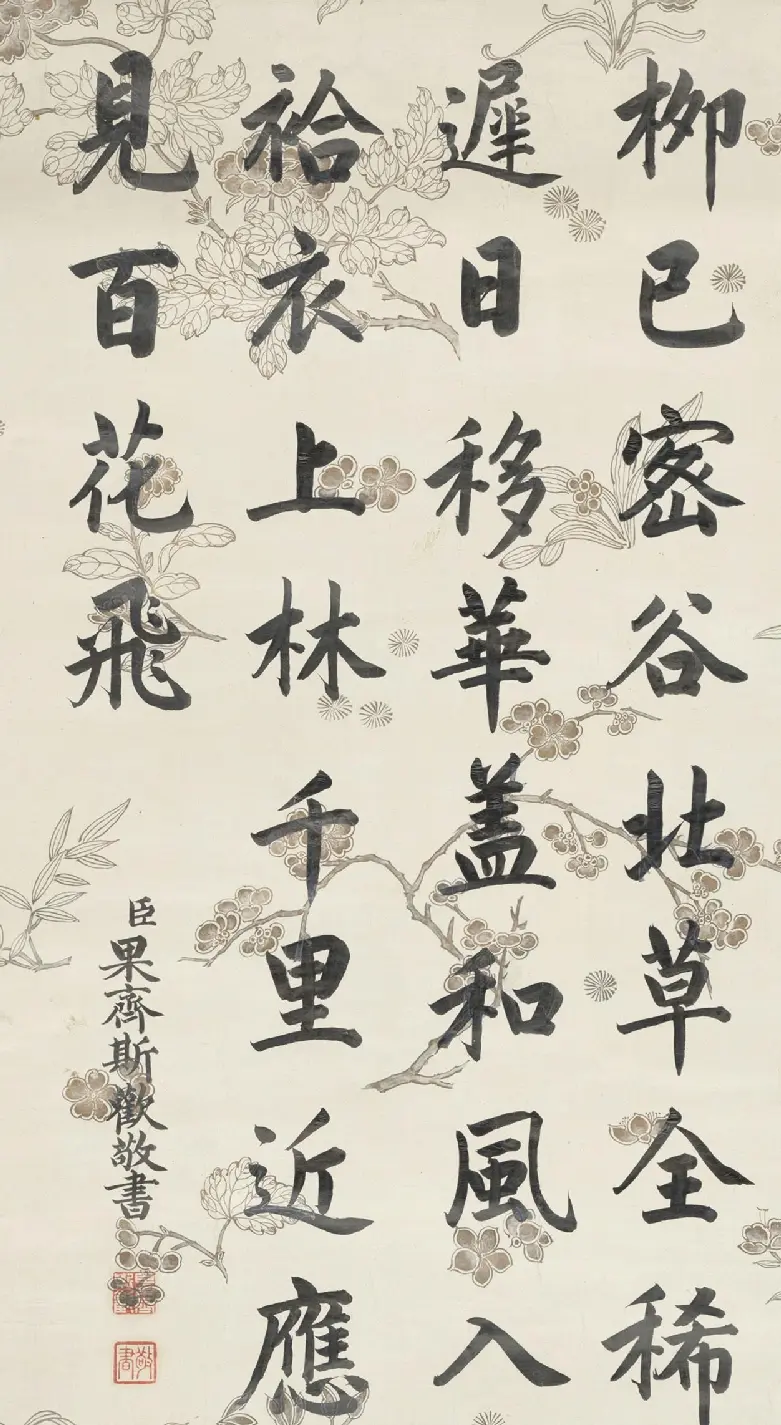 柳已密谷北草全稀
遲日移華蓋和風入
袷衣上林千里近應
見百花飛
臣果齊斯歡敬書
敬書